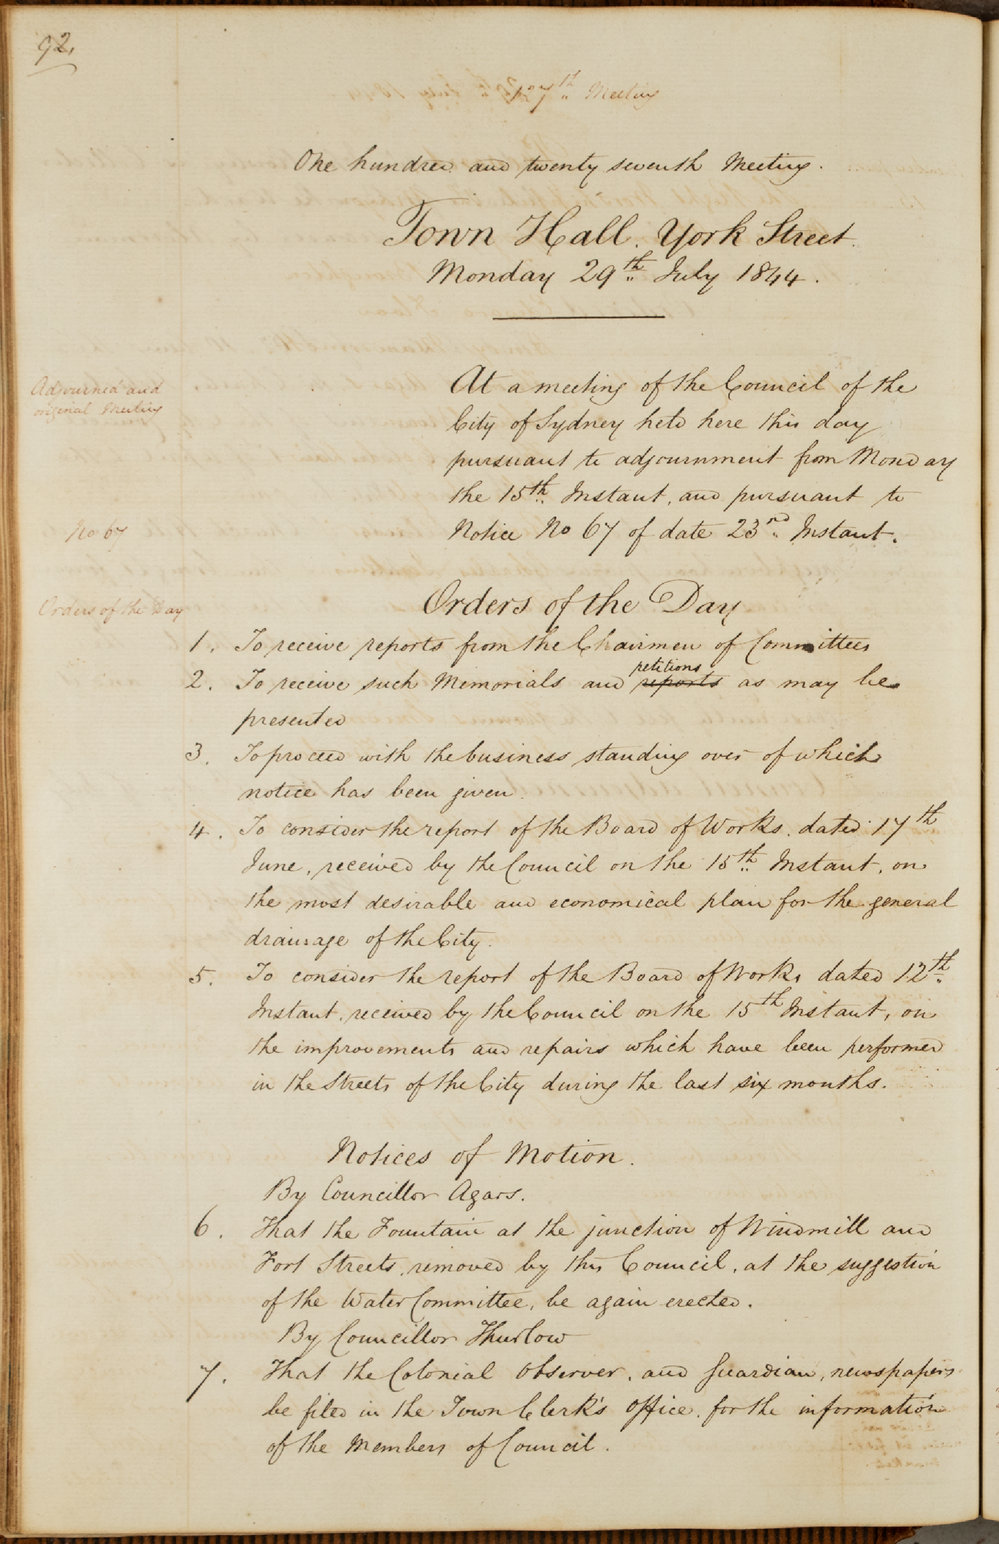 92.
127th Meeting
One hundred and twenty seventh Meeting.
Town Hall. York Street.
Monday 29th July 1844.
Adjourned and
original Meeting
At a meeting of the Council of the
City of Sydney held here this day
pursuant to adjournment from Monday
the 15th Instant, and pursuant to
No 67
Notice No 67 of date 23rd Instant.
Orders of the Day
Orders of the Day
1. To receive reports from the Chairmen of Committees
petitions
2. To receive such Memorials and reports as may be
presented
3. To proceed with the business standing over of which
notice has been given.
4. To consider the report of the Board of Works, dated 17th
June, received by the Council on the 15th Instant, on
the most desirable and economical plan for the general
drainage of the City.
5. To consider the report of the Board of Works dated 12th
Instant, received by the Council on the 15th Instant, on
the improvements and repairs which have been performed
in the Streets of the City during the last six months.
Notices of Motion.
By Councillor Agars.
6. That the Fountain at the junction of Windmill and
Fort Streets, removed by this Council, at the suggestion
of the Water Committee, be again erected.
By Councillor Thurlow
7. That the Colonial Observer, and Guardian, newspapers
be filed in the Town Clerk's office, for the information
of the Members of Council.